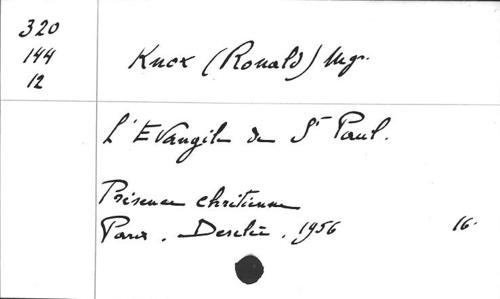 320
144
12
Knox (Ronald) Mgr.
L'Evangile de St Paul.
Présence chrétienne
Paris. Desclée. 1956 16.